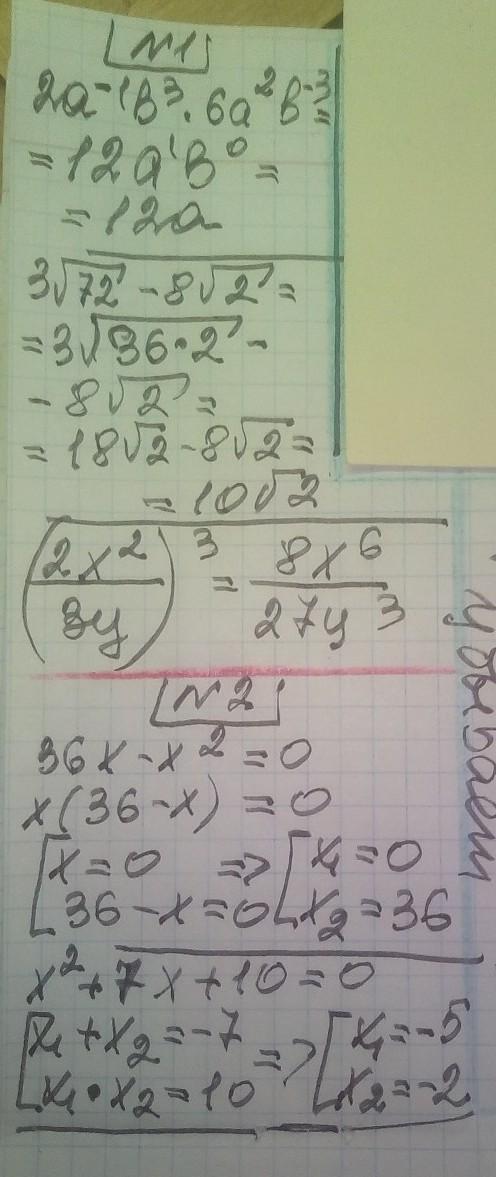 №1
2a⁻¹b³ · 6a²b⁻³ =
= 12a¹b⁰ =
= 12a
3√72 - 8√2 =
= 3√36·2 -
- 8√2 =
= 18√2 - 8√2 =
= 10√2
(2x²/3y)³ = 8x⁶/27y³
№2
36x - x² = 0
x(36 - x) = 0
[x = 0 => [x₁ = 0
[36 - x = 0 [x₂ = 36
x² + 7x + 10 = 0
[x₁ + x₂ = -7 => [x₁ = -5
[x₁ · x₂ = 10 [x₂ = -2
убывает